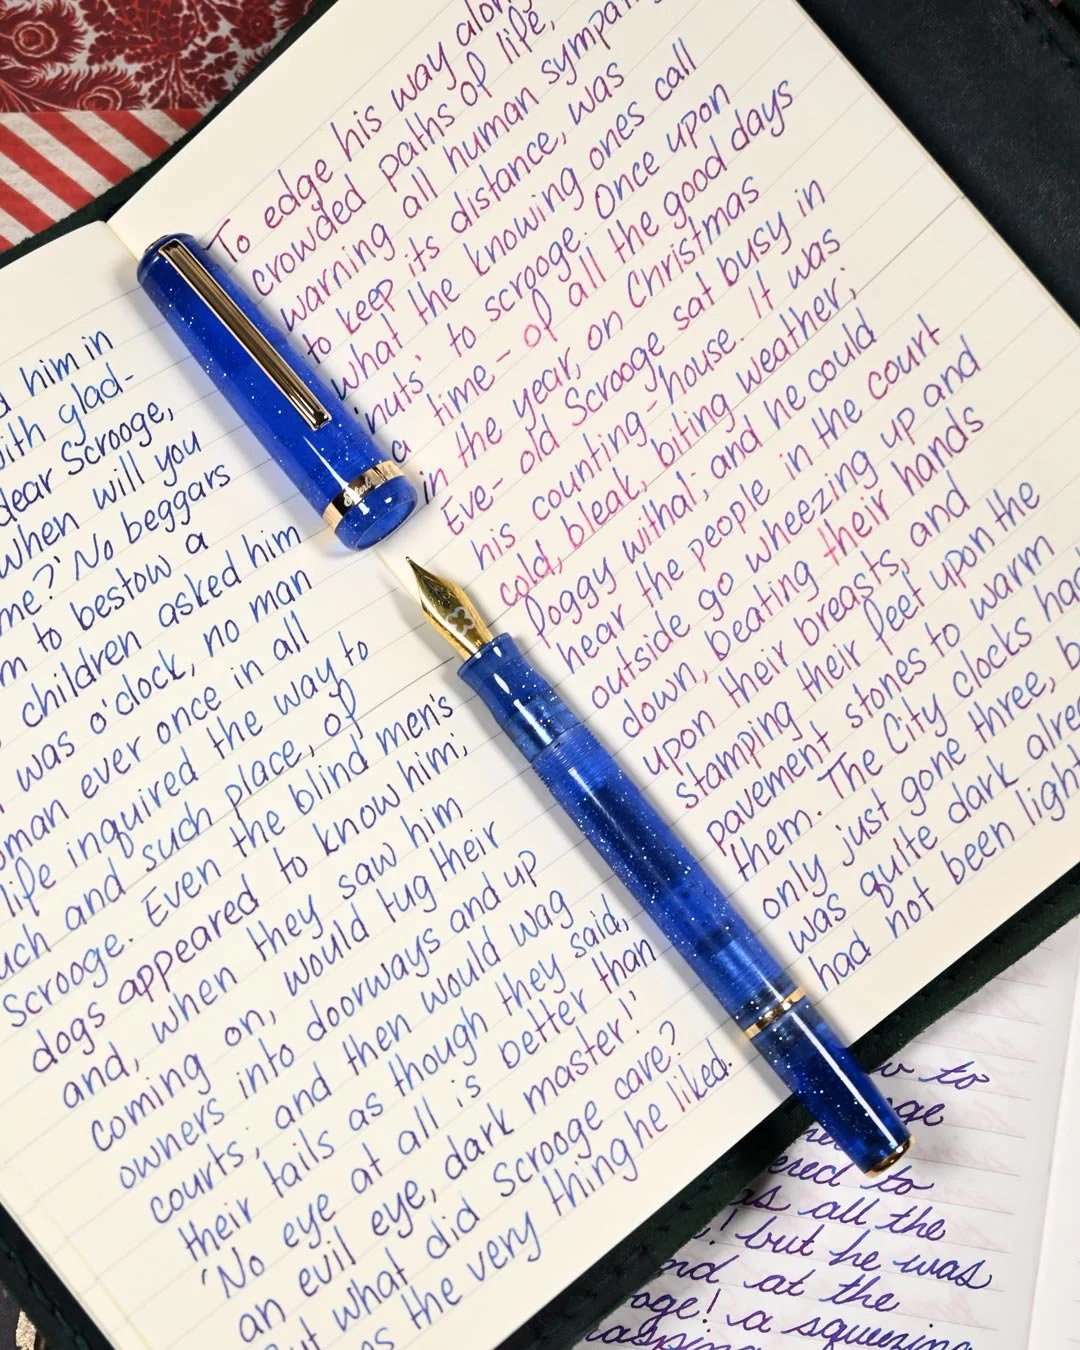 him in
with glad-
dear Scrooge,
When will you
me?' No beggars
to bestow a
children asked him
was o'clock, no man
ever once in all
life inquired the way to
and such place, of
Scrooge. Even the blind men's
dogs appeared to know him;
and, when they saw him
coming on, would tug their
owners into doorways and up
courts; and then would wag
their tails as though they said,
'No eye at all is better than
an evil eye, dark master!'
But what did Scrooge care?
the very thing he liked.
To edge his way along
crowded paths of life,
warning all human
to keep its distance, was
what the knowing ones call
'nuts' to scrooge. Once upon
a time - of all the good days
in the year, on Christmas
Eve- old Scrooge sat busy in
his counting-house. It was
cold, bleak, biting weather;
foggy withal; and he could
hear the people in the court
outside go wheezing up and
down, beating their hands
upon their breasts, and
stamping their feet upon the
pavement stones to warm
them. The City clocks had
only just gone three, b
was quite dark
had not been light
to
to
as all the
! but he was
at the
! a squeezing